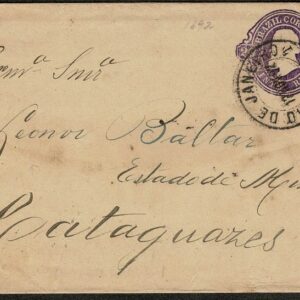 1892
BRAZIL COR
RIO DE JANEIRO
Exmª Snrª
Leonor Ballar
Estado de Mi
Cataguazes